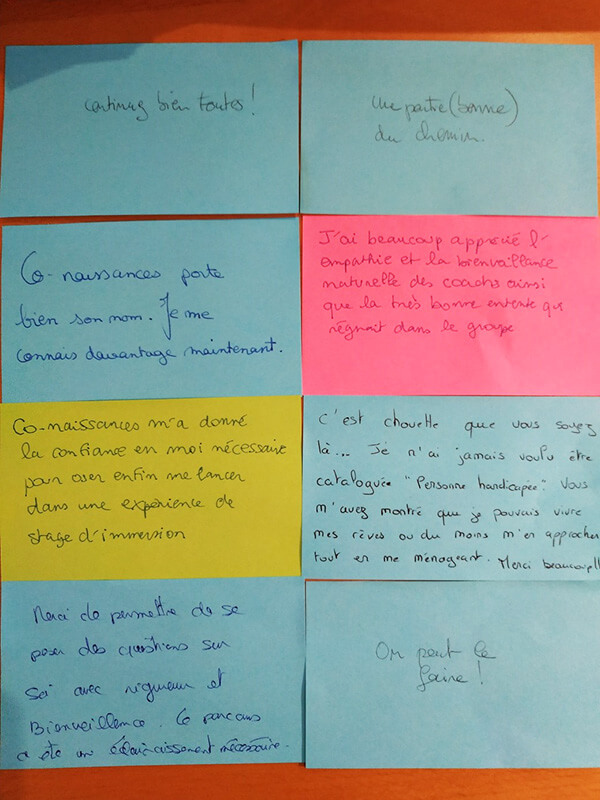 continuez bien toutes !
Une partie (bonne)
du chemin.
Co-naissances porte
bien son nom. Je me
connais davantage maintenant.
J'ai beaucoup apprécié l'
empathie et la bienvaillance
naturelle des coachs ainsi
que la très bonne entente qui
règnait dans le groupe
Co-naissances m'a donné
la confiance en moi nécessaire
pour oser enfin me lancer
dans une expérience de
stage d'immersion
C'est chouette que vous soyez
là... Je n'ai jamais voulu être
cataloguée "Personne handicapée". Vous
m'avez montré que je pouvais vivre
mes rêves ou du moins m'en approcher
tout en me ménageant. Merci beaucoup!!
Merci de permettre de se
poser des questions sur
soi avec rigueur et
Bienveillence. Ce parcours
a été un éclaircissement nécessaire.
On peut le
faire !